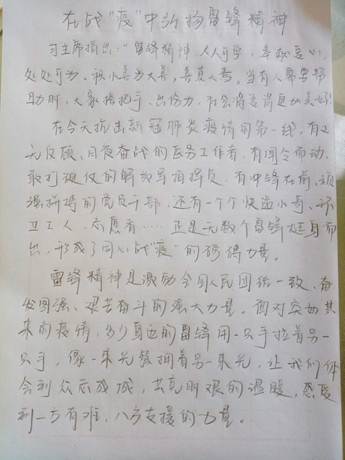 在战“疫”中弘扬雷锋精神
习主席指出：“雷锋精神，人人可学；奉献爱心，
处处可为。积小善为大善，善莫大焉。当有人需要帮
助时，大家搭把手、出份力，社会将变得更加美好。”
在今天抗击新冠肺炎疫情的第一线，有义
无反顾、日夜奋战的医务工作者，有闻令而动、
敢打硬仗的解放军指战员，有冲锋在前、顽
强拼搏的党员干部，还有一个个快递小哥、环
卫工人、志愿者……正是无数个雷锋挺身而
出，形成了同心战“疫”的磅礴力量。
雷锋精神是激励全国人民团结一致、奋
发图强、艰苦奋斗的强大力量。面对突如其
来的疫情，身边的雷锋用一只手拉着另一
只手，像一束光簇拥着另一束光，让我们体
会到众志成城，共克时艰的温暖，感受
到一方有难，八方支援的力量。